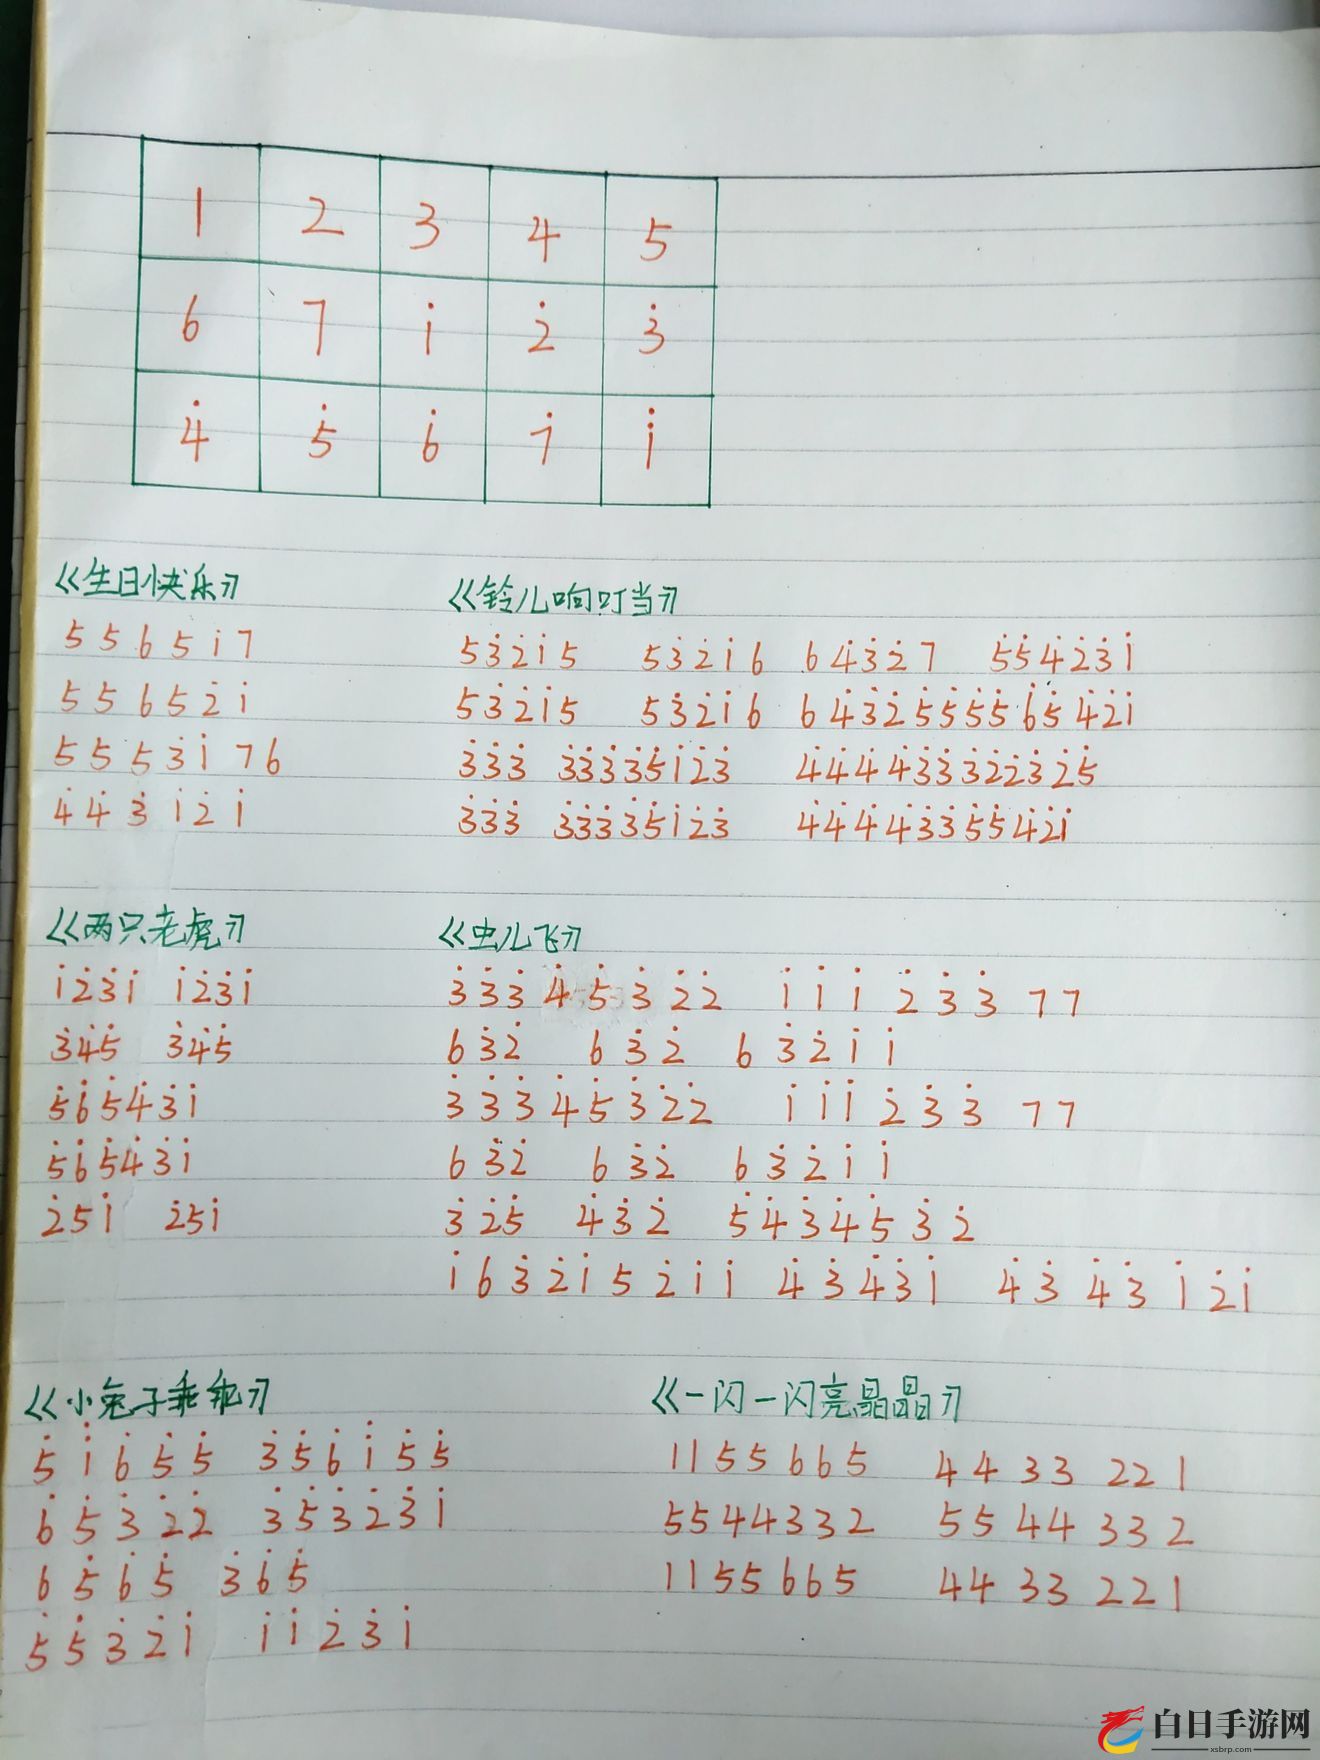 1 2 3 4 5
6 7 1̇ 2̇ 3̇
4̇ 5̇ 6̇ 7̇ 1̈
《生日快乐》
5 5 6 5 1̇ 7
5 5 6 5 2̇ 1̇
5 5 5̇ 3̇ 1̇ 7 6
4̇ 4̇ 3̇ 1̇ 2̇ 1̇
《铃儿响叮当》
5 3̇ 2̇ 1̇ 5 5 3̇ 2̇ 1̇ 6 6 4̇ 3̇ 2̇ 7 5̇ 5̇ 4̇ 2̇ 3̇ 1̇
5 3̇ 2̇ 1̇ 5 5 3̇ 2̇ 1̇ 6 6 4̇ 3̇ 2̇ 5̇ 5̇ 5̇ 5̇ 6̇ 5̇ 4̇ 2̇ 1̇
3̇ 3̇ 3̇ 3̇ 3̇ 3̇ 3̇ 5̇ 1̇ 2̇ 3̇ 4̇ 4̇ 4̇ 4̇ 3̇ 3̇ 3̇ 2̇ 2̇ 3̇ 2̇ 5̇
3̇ 3̇ 3̇ 3̇ 3̇ 3̇ 3̇ 5̇ 1̇ 2̇ 3̇ 4̇ 4̇ 4̇ 4̇ 3̇ 3̇ 5̇ 5̇ 4̇ 2̇ 1̇
《两只老虎》
1̇ 2̇ 3̇ 1̇ 1̇ 2̇ 3̇ 1̇
3̇ 4̇ 5̇ 3̇ 4̇ 5̇
5̇ 6̇ 5̇ 4̇ 3̇ 1̇
5̇ 6̇ 5̇ 4̇ 3̇ 1̇
2̇ 5 1̇ 2̇ 5 1̇
《虫儿飞》
3̇ 3̇ 3̇ 4̇ 5̇ 3̇ 2̇ 2̇ 1̇ 1̇ 1̇ 2̇ 3̇ 3̇ 7 7
6 3̇ 2̇ 6 3̇ 2̇ 6 3̇ 2̇ 1̇ 1̇
3̇ 3̇ 3̇ 4̇ 5̇ 3̇ 2̇ 2̇ 1̇ 1̇ 1̇ 2̇ 3̇ 3̇ 7 7
6 3̇ 2̇ 6 3̇ 2̇ 6 3̇ 2̇ 1̇ 1̇
3̇ 2̇ 5̇ 4̇ 3̇ 2̇ 5̇ 4̇ 3̇ 4̇ 5̇ 3̇ 2̇
1̇ 6 3̇ 2̇ 1̇ 5 2̇ 1̇ 1̇ 4̇ 3̇ 4̇ 3̇ 1̇ 4̇ 3̇ 4̇ 3̇ 1̇ 2̇ 1̇
《小兔子乖乖》
5̇ 1̈ 6̇ 5̇ 5̇ 3̇ 5̇ 6̇ 1̇ 5̇ 5̇
6̇ 5̇ 3̇ 2̇ 2̇ 3̇ 5̇ 3̇ 2̇ 3̇ 1̇
6 5̇ 6̇ 5̇ 3̇ 6̇ 5̇
5̇ 5̇ 3̇ 2̇ 1̇ 1̇ 1̇ 2̇ 3̇ 1̇
《一闪一闪亮晶晶》
1 1 5 5 6 6 5 4 4 3 3 2 2 1
5 5 4 4 3 3 2 5 5 4 4 3 3 2
1 1 5 5 6 6 5 4 4 3 3 2 2 1
白日手游网
xsbrp.com